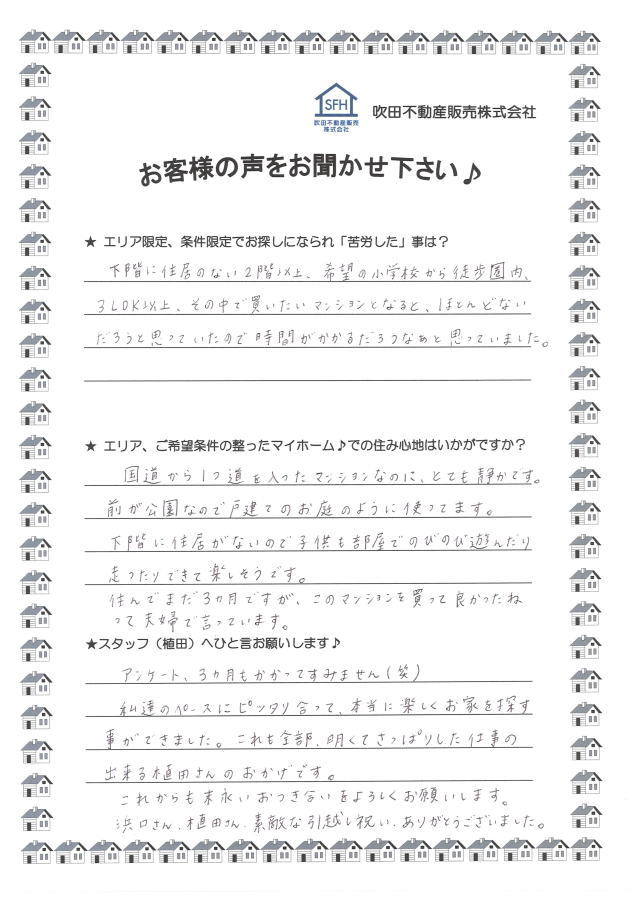 SFH
吹田不動産販売
株式会社
吹田不動産販売株式会社
お客様の声をお聞かせ下さい♪
★ エリア限定、条件限定でお探しになられ「苦労した」事は？
下階に住居のない2階以上、希望の小学校から徒歩圏内、
3LDK以上、その中で買いたいマンションとなると、ほとんどない
だろうと思っていたので時間がかかるだろうなぁと思っていました。
★ エリア、ご希望条件の整ったマイホーム♪での住み心地はいかがですか？
国道から1つ道を入ったマンションなのに、とても静かです。
前が公園なので戸建てのお庭のように使ってます。
下階に住居がないので子供も部屋でのびのび遊んだり
走ったりできて楽しそうです。
住んでまだ3ヵ月ですが、このマンションを買って良かったね
って夫婦で言っています。
★スタッフ（植田）へひと言お願いします♪
アンケート、3ヵ月もかかってすみません(笑)
私達のペースにピッタリ合って、本当に楽しくお家を探す
事ができました。これも全部、明くてさっぱりした仕事の
出来る植田さんのおかげです。
これからも末永いおつき合いをよろしくお願いします。
浜口さん、植田さん、素敵な引越し祝い、ありがとうございました。